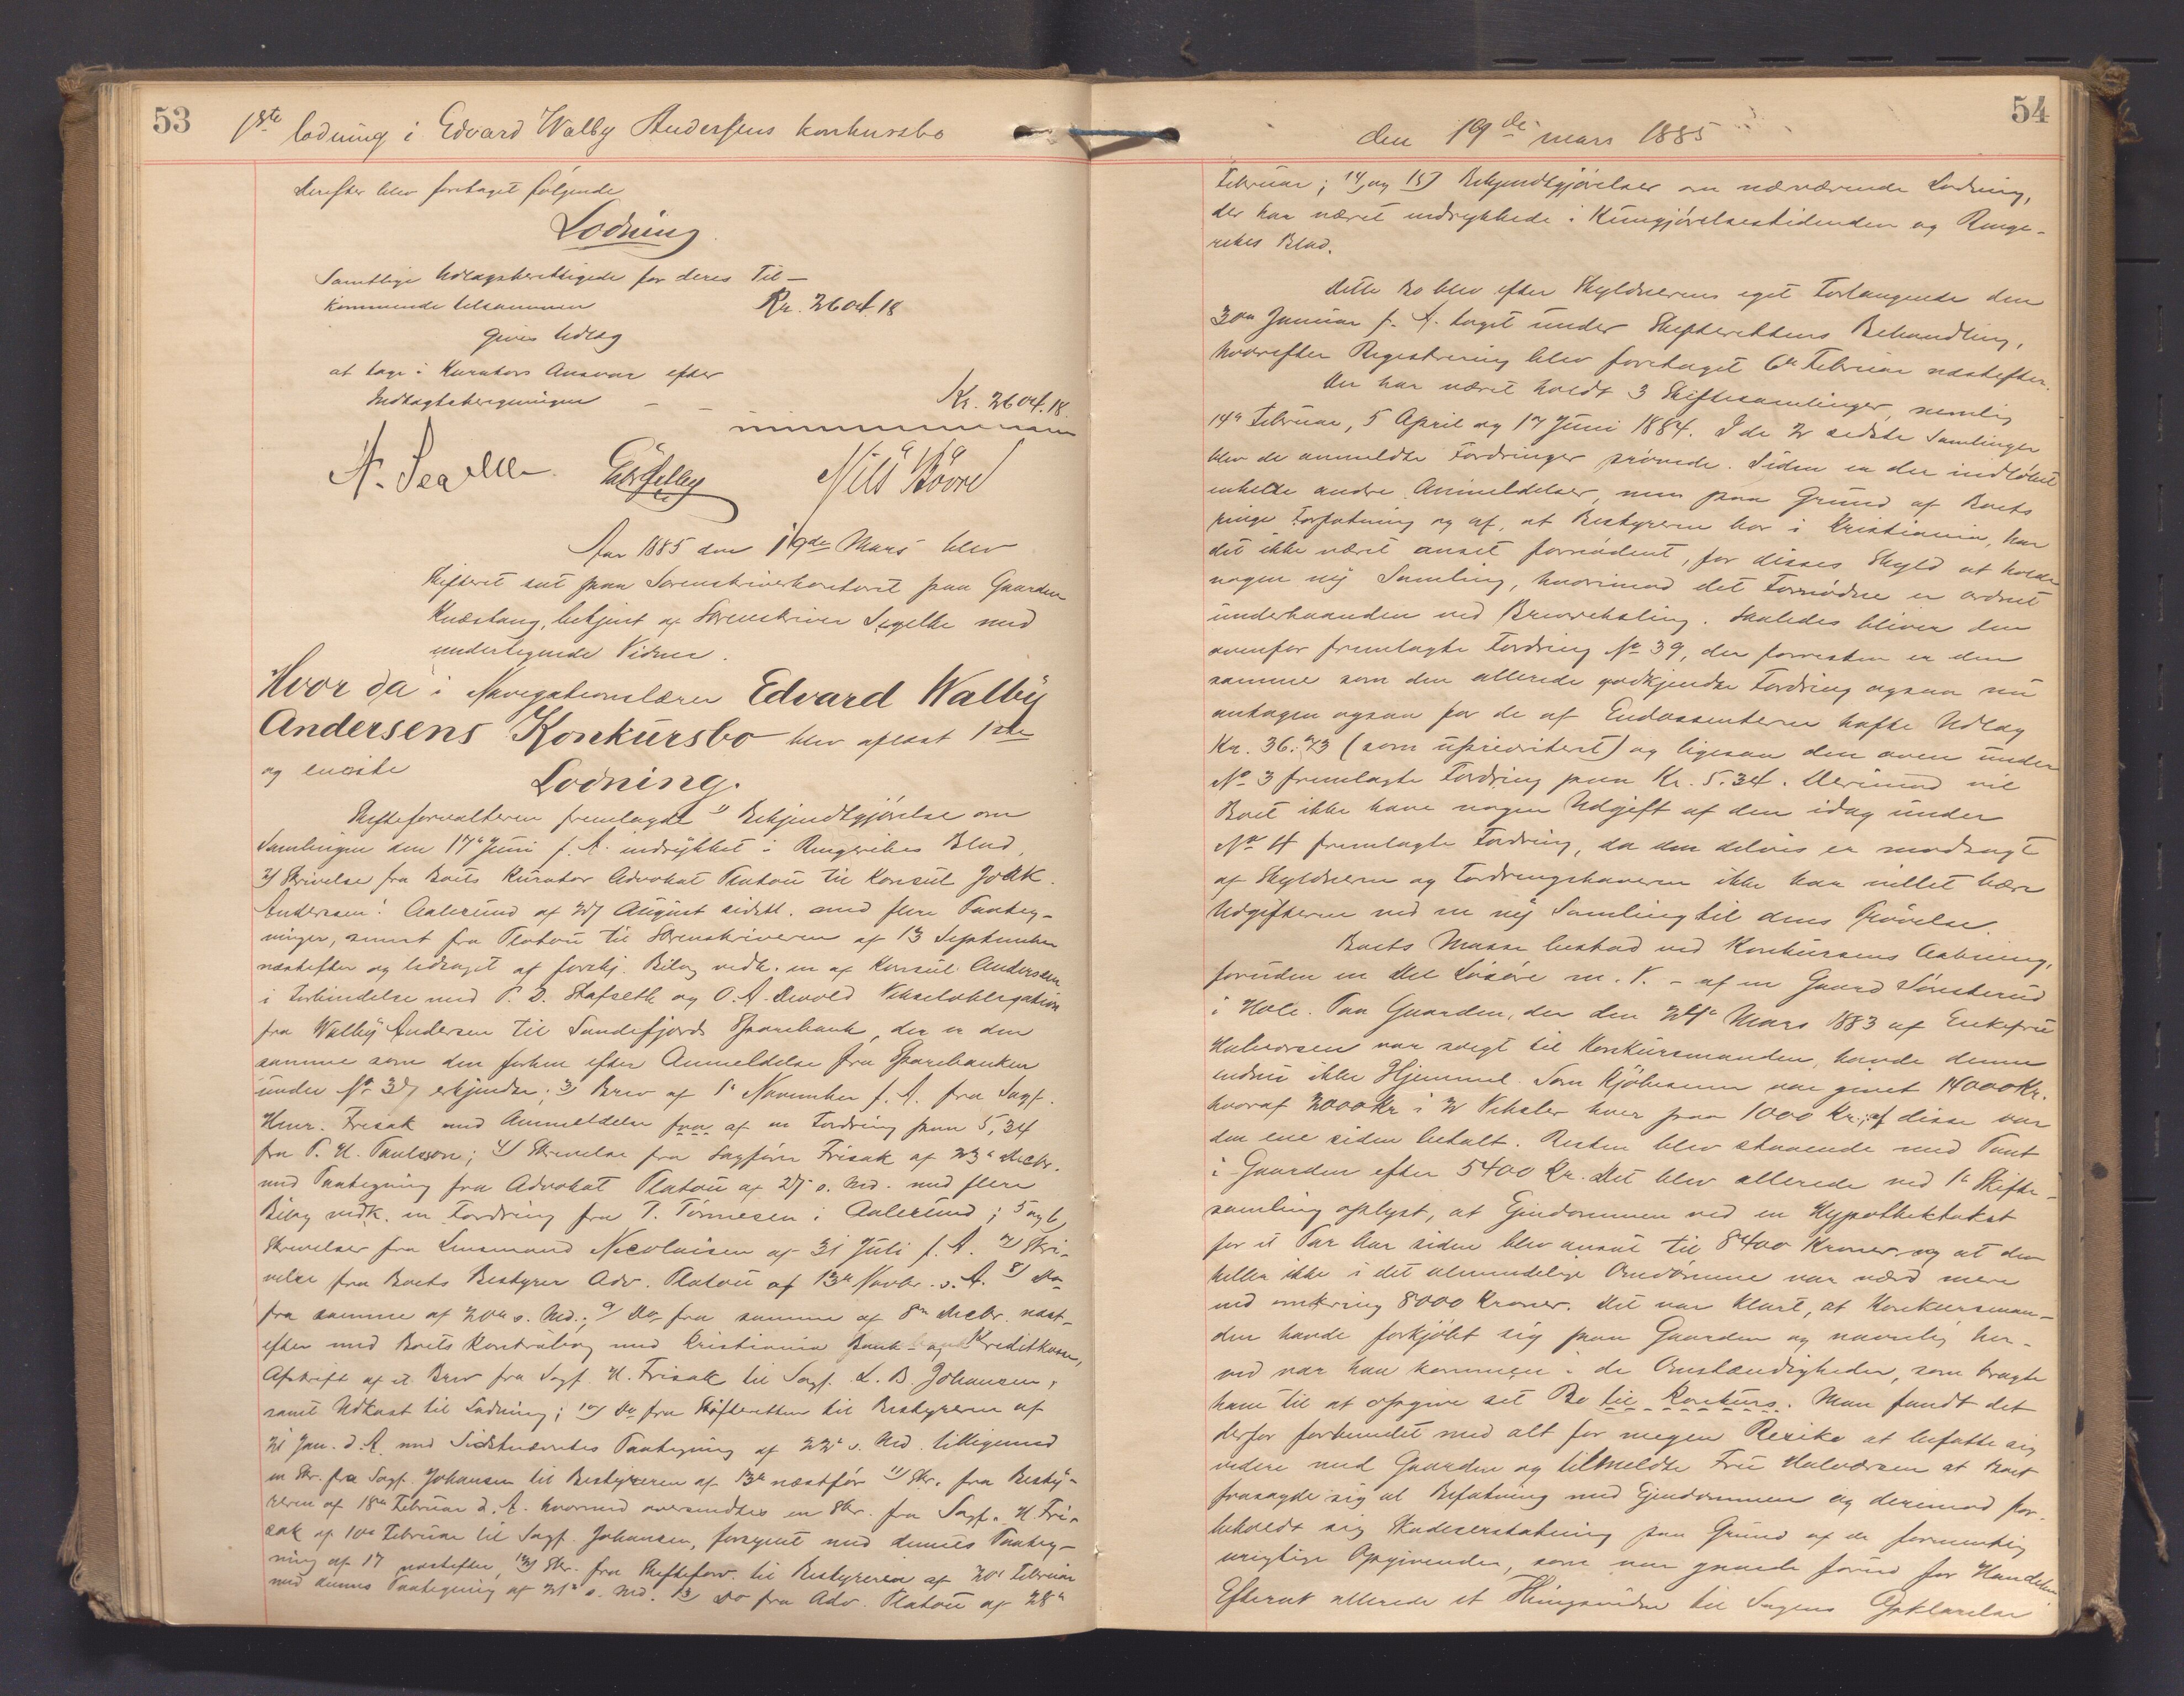 53
1ste lodning i Edvard Walby Andersens konkursbo
Derefter blev foretaget følgende
Lodning
Samtlige Udlagsberettigede for deres Til-
kommende tilsammen Kr. 2604.18
gives Udlag
at tage i Kurators Ansvar efter
Indtægtsberegningen - - Kr. 2604.18.
Nils Bövre
Aar 1885 den 19de Mars blev
Skifteret sat paa Sorenskriverkontoret paa Gaarden
Knæstang, betjent af Sorenskriver Segelke med
undertegnede Vidner.
Hvor da i Navigationslærer Edvard Walby
Andersens Konkursbo blev afløst 1ste
og eneste Lodning.
Skifteforvalteren fremlagde 1) Bekjendtgjørelse om
Samlingen den 17de Juni f. A. indrykket i Ringerikes Blad,
2) Skrivelse fra Boets Kurator Advokat Platou til Konsul Joak.
Andersen i Aalesund af 27 August sidstl. med flere Paateg-
ninger, senest fra Platou til Sorenskriveren af 13 September
næstefter og ledsaget af forskj. Bilag vedk. en af Konsul Andersen
i Forbindelse med P. D. Stafseth og O. A. Devold Vekselobligation
fra Walby Andersen til Sandefjords Sparebank, der er den
samme som den forhen efter Anmeldelse fra Sparebanken
under No 37 erkjendte; 3) Brev af 1de November f. A. fra Sagf.
Henr. Frisak med Anmeldelse fra af en Fordring paa 5,34
fra P. H. Paulsson; 4) Skrivelse fra Sagfører Frisak af 23de Decbr.
med Paategning fra Advokat Platou af 27 s. Md. med flere
Bilag vedk. en Fordring fra T. Tönnesen i Aalesund; 5 og 6)
Skrivelser fra Lensmand Nicolaisen af 31 Juli f. A. 7) Skri-
velse fra Boets Bestyrer Adv. Platou af 13de Novbr. s. A. 8) Do
fra samme af 20de s. Md.; 9) Do fra samme af 8de Decbr. næst-
efter med Boets Kontrabog med Kristiania Bank- og Kreditkasse,
Afskrift af et Brev fra Sagf. H. Frisak til Sagf. L. B. Johansen,
samt Udkast til Lodning; 10) Do fra Skifteretten til Bestyreren af
21 Jan. d. A. med Sidstnævntes Paategning af 22de s. Md. tilligemed
en Skr. fra Sagf. Johansen til Bestyreren af 13de næstfør 11) Skr. fra Besty-
reren af 18de Februar d. A. hvormed oversendtes en Skr. fra Sagf. H. Fri-
sak af 10de Februar til Sagf. Johansen, forsynet med dennes Paateg-
ning af 17 næstefter, 12) Skr. fra Skifteforv. til Bestyreren af 20de Februar
med dennes Paategning af 21de s. Md. 13) Do fra Adv. Platou af 28de
54
den 19de mars 1885
Februar; 14) og 15) Bekjendtgjørelser om nærværende Lodning,
der har været indrykkede i Kungjørelsestidenden og Ringe-
rikes Blad.
Dette Bo blev efter Skyldnerens eget Forlangende den
30te Januar f. A. taget under Skifterettens Behandling,
hvorefter Registrering blev foretaget 6te Februar næstefter.
Der har været holdt 3 Skiftesamlinger, nemlig
14de Februar, 5 April og 17 Juni 1884. I de 2 sidste Samlinger
blev de anmeldte Fordringer prövede. Siden er der indløbet
enkelte andre Anmeldelser, men paa Grund af Boets
ringe Forfatning og af, at Bestyreren bor i Kristiania, har
det ikke været anset fornødent, for disses Skyld at holde
nogen ny Samling, hvorimod det Fornødne er ordnet
underhaanden ved Brevveksling. Saaledes bliver den
ovenfor fremlagte Fordring No 39, der forresten er den
samme som den allerede godkjendte Fordring ogsaa nu
antagen ogsaa for de af Endossenterne hafte Udlag
Kr. 36.73 (som uprioriteret) og ligesaa den oven under
No 3 fremlagte Fordring paa Kr. 5.34. Derimod vil
Boet ikke have nogen Udgift af den idag under
No 4 fremlagte Fordring, da den delvis er modsagt
af Skyldneren og Fordringshaveren ikke har villet bære
Udgifterne ved en ny Samling til dens Prövelse.
Boets Masse bestod ved Konkursens Aabning,
foruden en Del Løsøre m. V. - af en Gaard Sönsterud
i Hole. Paa Gaarden, der den 24de Mars 1883 af Enkefru
Halvorsen var solgt til Konkursmanden, havde denne
endnu ikke Hjemmel. Som Kjøbesum var givet 14000 Kr.
hvoraf 2000 Kr i 2 Veksler hver paa 1000 Kr.; af disse var
den ene siden betalt. Resten blev staaende med Pant
i Gaarden efter 5400 Kr. Det blev allerede ved 1ste Skifte-
samling oplyst, at Eiendommen ved en Hypothektakst
for et Par Aar siden blev ansat til 8400 Kroner og at den
heller ikke i det almindelige Omdømme var værd mere
end omkring 8000 Kroner. Det var klart, at Konkursman-
den havde forkjøbt sig paa Gaarden og navnlig her-
ved var han kommen i de Omstændigheder, som bragte
ham til at opgive sit Bo til Konkurs. Man fandt det
derfor forbundet med alt for megen Risiko at befatte sig
videre med Gaarden og tilmeldte Fru Halvorsen at Boet
frasagde sig al Befatning med Eiendommen og derimod for-
beholdt sig Skadeserstatning paa Grund af de formentlig
urigtige Opgivender, som var gaaede forud for Handelen.
Efterat allerede et Thingsvidne til Sagens Opklarelse